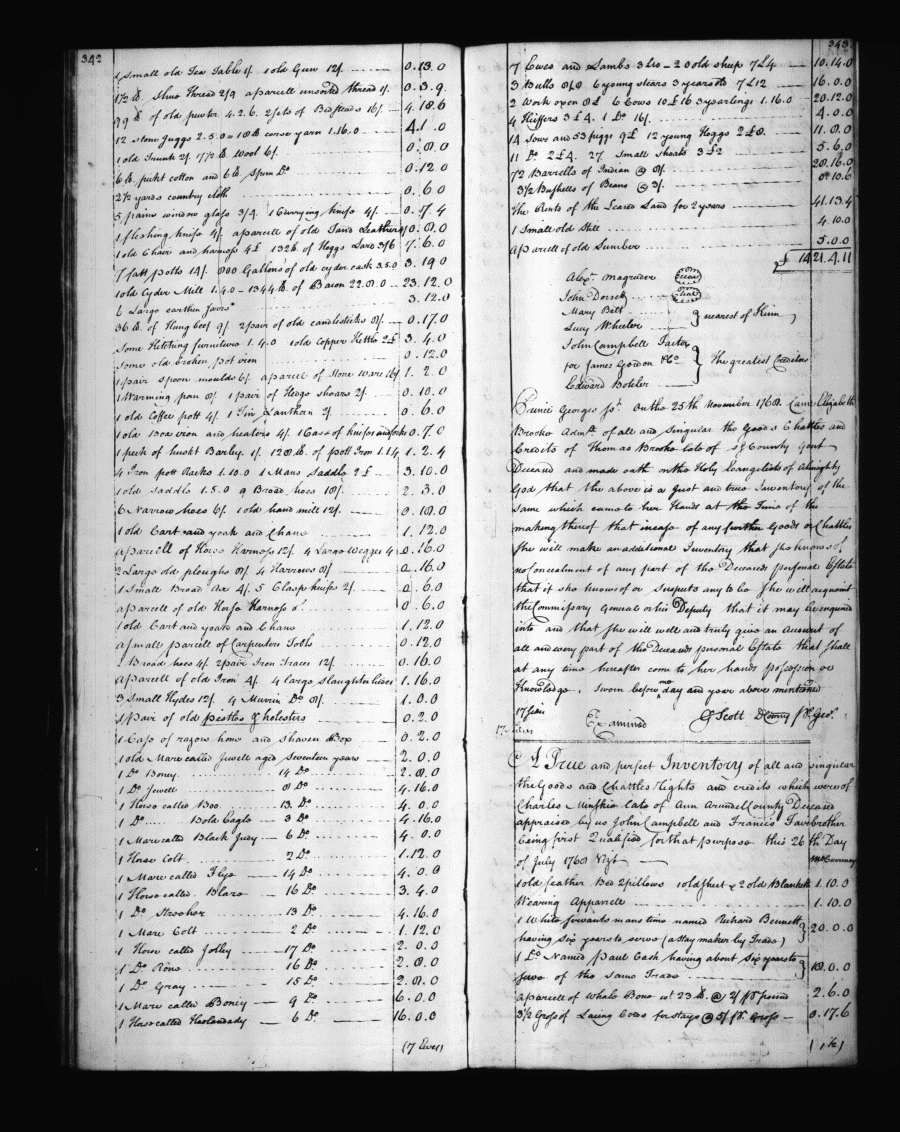 342
1 Small old Tea Table 1/. 1 old Gun 12/. 0.13.0
1 1/2 lb. Shoe Thread 2/9 a parcell unsorted thread 1/. 0.3.9.
99 lb of old pewter 4.2.6. 2 sets of Bedsteads 16/. 4.18.6
12 stone Juggs 2.5.0 18 lb corse yarn 1.16.0 4.1.0
1 old Trunk 2/. 7 1/2 lb Wool 6/. 0.8.0
6 lb. pickt cotton and 6 lb. Spun Do. 0.12.0
2 1/2 yards country cloth 0.6.0
5 pains window glass 3/4 1 Currying knife 4/. 0.7.4
1 fleshing knife 4/. a parcell of old Tand Leather 0.8.0
1 old Chair and harness 4£ 132 lb. of Hoggs Lard 3/6 7.6.0
7 fatt potts 14/. 800 Gallons of old cyder cask 3.5.0 3.19.0
1 old Cyder Mill 1.4.0 1344 lb. of Bacon 22.8.0 23.12.0
6 Large earthen Jarrs 3.12.0
36 lb. of Hung beef 9/. 2 pair of old candlesticks 8/. 0.17.0
Some Kitching furniture 1.4.0 1 old Copper Kettle 2£ 3.4.0
Some old broken pot iron 0.12.0
1 pair spoon moulds 6/. a parcell of Stone ware 16/ 1.2.0
1 Warming pan 8/. 1 pair of Hedge shears 2/. 0.10.0
1 old Coffee pott 4/. 1 Tin Lanthorn 2/. 0.6.0
1 old Box iron and heaters 4/. 1 Case of knifes and forks 0.7.0
1 peck of huskt Barley. 1/. 128 lb. of pott Iron 1.1.4 1.2.4
4 Iron pott Racks 1.10.0 1 Mans Saddle 2£ 3.10.0
1 old Saddle 1.5.0 9 Broad hoes 18/. 2.3.0
6 Narrow hoes 6/. 1 old hand mill 12/. 0.18.0
1 old Cart and yoak and Chane 1.12.0
a parcell of Horse Harness 12/. 4 Large Wegges 4/. 0.16.0
2 Large old ploughs 8/. 4 Harrows 8/. 0.16.0
1 Small Broad Ax 4/. 5 Clasp knifes 2/. 0.6.0
a parcell of old Horse Harness 0.6.0
1 old Cart and yoak and Chane 1.12.0
a small parcell of Carpenters Tools 0.12.0
Broad hoes 4/. 2 pair Iron Traces 12/. 0.16.0
a parcell of old Iron 4/. 4 large slaughter hides 1.16.0
3 Small Hydes 12/. 4 Murrin Do. 8/. 1.0.0
1 pair of old pistols & holsters 0.2.0
1 Case of razors hone and shaven Box 0.2.0
1 old Mare called Jewell aged Seventeen years 2.0.0
1 Do. Boney 14 Do. 2.8.0
1 Do. Jewell 8 Do. 4.16.0
1 Horse called Boo 13. Do. 4.0.0
1 Do. Bold Eagle 3 Do. 4.16.0
1 Mare called Black Judy 6 Do. 4.0.0
1 Horse Colt 2 Do. 1.12.0
1 Mare called Flye 14 Do. 4.0.0
1 Horse called Blaze 16 Do. 3.4.0
1 Do. 13 Do. 4.16.0
1 Mare Colt 2 Do. 1.12.0
1 Horse called Jolley 17 Do. 2.0.0
1 Do. Rone 16 Do. 2.8.0
1 Do. Gray 15 Do. 2.8.0
1 Mare called Boney 9 Do. 6.0.0
1 Horse called 6 Do. 16.0.0
(7 Ewes)
343
7 Ewes and Lambs 3 20 old sheep 7£4 10.14.0
3 Bulls 8£8 6 young stears 3 years old 7£12 16.0.0
2 Work oxen 8£ 6 Cows 10£16 3 yearlings 1.16.0 20.12.0
4 Heiffers 3£4. 1 Do. 16/. 4.0.0
14 Sows and 53 piggs 9£ 12 young Hoggs 2£8. 11.8.0
11 Do. 2£4. 27 Small Shoats 3£2 5.6.0
72 Barrells of Indian @ 8/. 28.16.0
3 1/2 Bushells of Beans @ 3/. 0.10.6
the Rents of the Leased Land for 2 years 41.13.4
1 Small old Still 4.10.0
a parcell of old Lumber 5.0.0
£ 1421.4.11
Alexr. Magruder (Seal)
John Dorsett (Seal)
Mary Belt
Lucy Wheeler } nearest of Kinn
John Campbell Factor
for James Gordon & Co } the greatest Creditors
Edward Boteler
Prince Georges sst. On the 25th November 1768. Came Elizabeth
Brooke Admx. of all and singular the Goods Chattles and
Credits of Thomas Brooke late of sd County Gent
Deceased and made oath on the Holy Evangelists of Almighty
God that the above is a Just and true Inventory of the
same which came to her Hands at the Time of the
making thereof that incase of any further Goods or Chattles
She will make an additional Inventory that she knows of
no Concealment of any part of the Deceaseds personal Estate
that if she knows of or suspects any to be She will acquaint
the Commissary General or his Deputy that it may be enquired
into and that She will well and truly give an Account of
all and every part of the Deceaseds personal Estate that shall
at any time hereafter come to her hands possession or
Knowledge. Sworn before me day and year above mentioned
17 Sides Examined Scott D Comy Pr. Geo.
17 Sides
A True and perfect Inventory of all and singular
the Goods and Chattles Rights and credits which were of
Charles Minskie late of Ann Arundel County Deceased
appraised by us John Campbell and Francis Fairbrother
being first Qualified for that purpose this 26th Day
of July 1768 Vizt. Currency
1 old feather Bed 2 pillows 1 old sheet & 2 old Blankets 1.10.0
Wearing Apparell 1.10.0
1 White servants mans time named Richard Bennett
having Six years to serve (a Stay maker by Trade) } 20.0.0
1 Do. Named Paul Cash having about Six years to
serve of the same Trade } 18.0.0
a parcell of Whale Bone wt. 23 lb. @ 2/ pr pound 2.6.0
3 1/2 Gross of Laceing Cords for stays @ 5/. pr. Gross 0.17.6